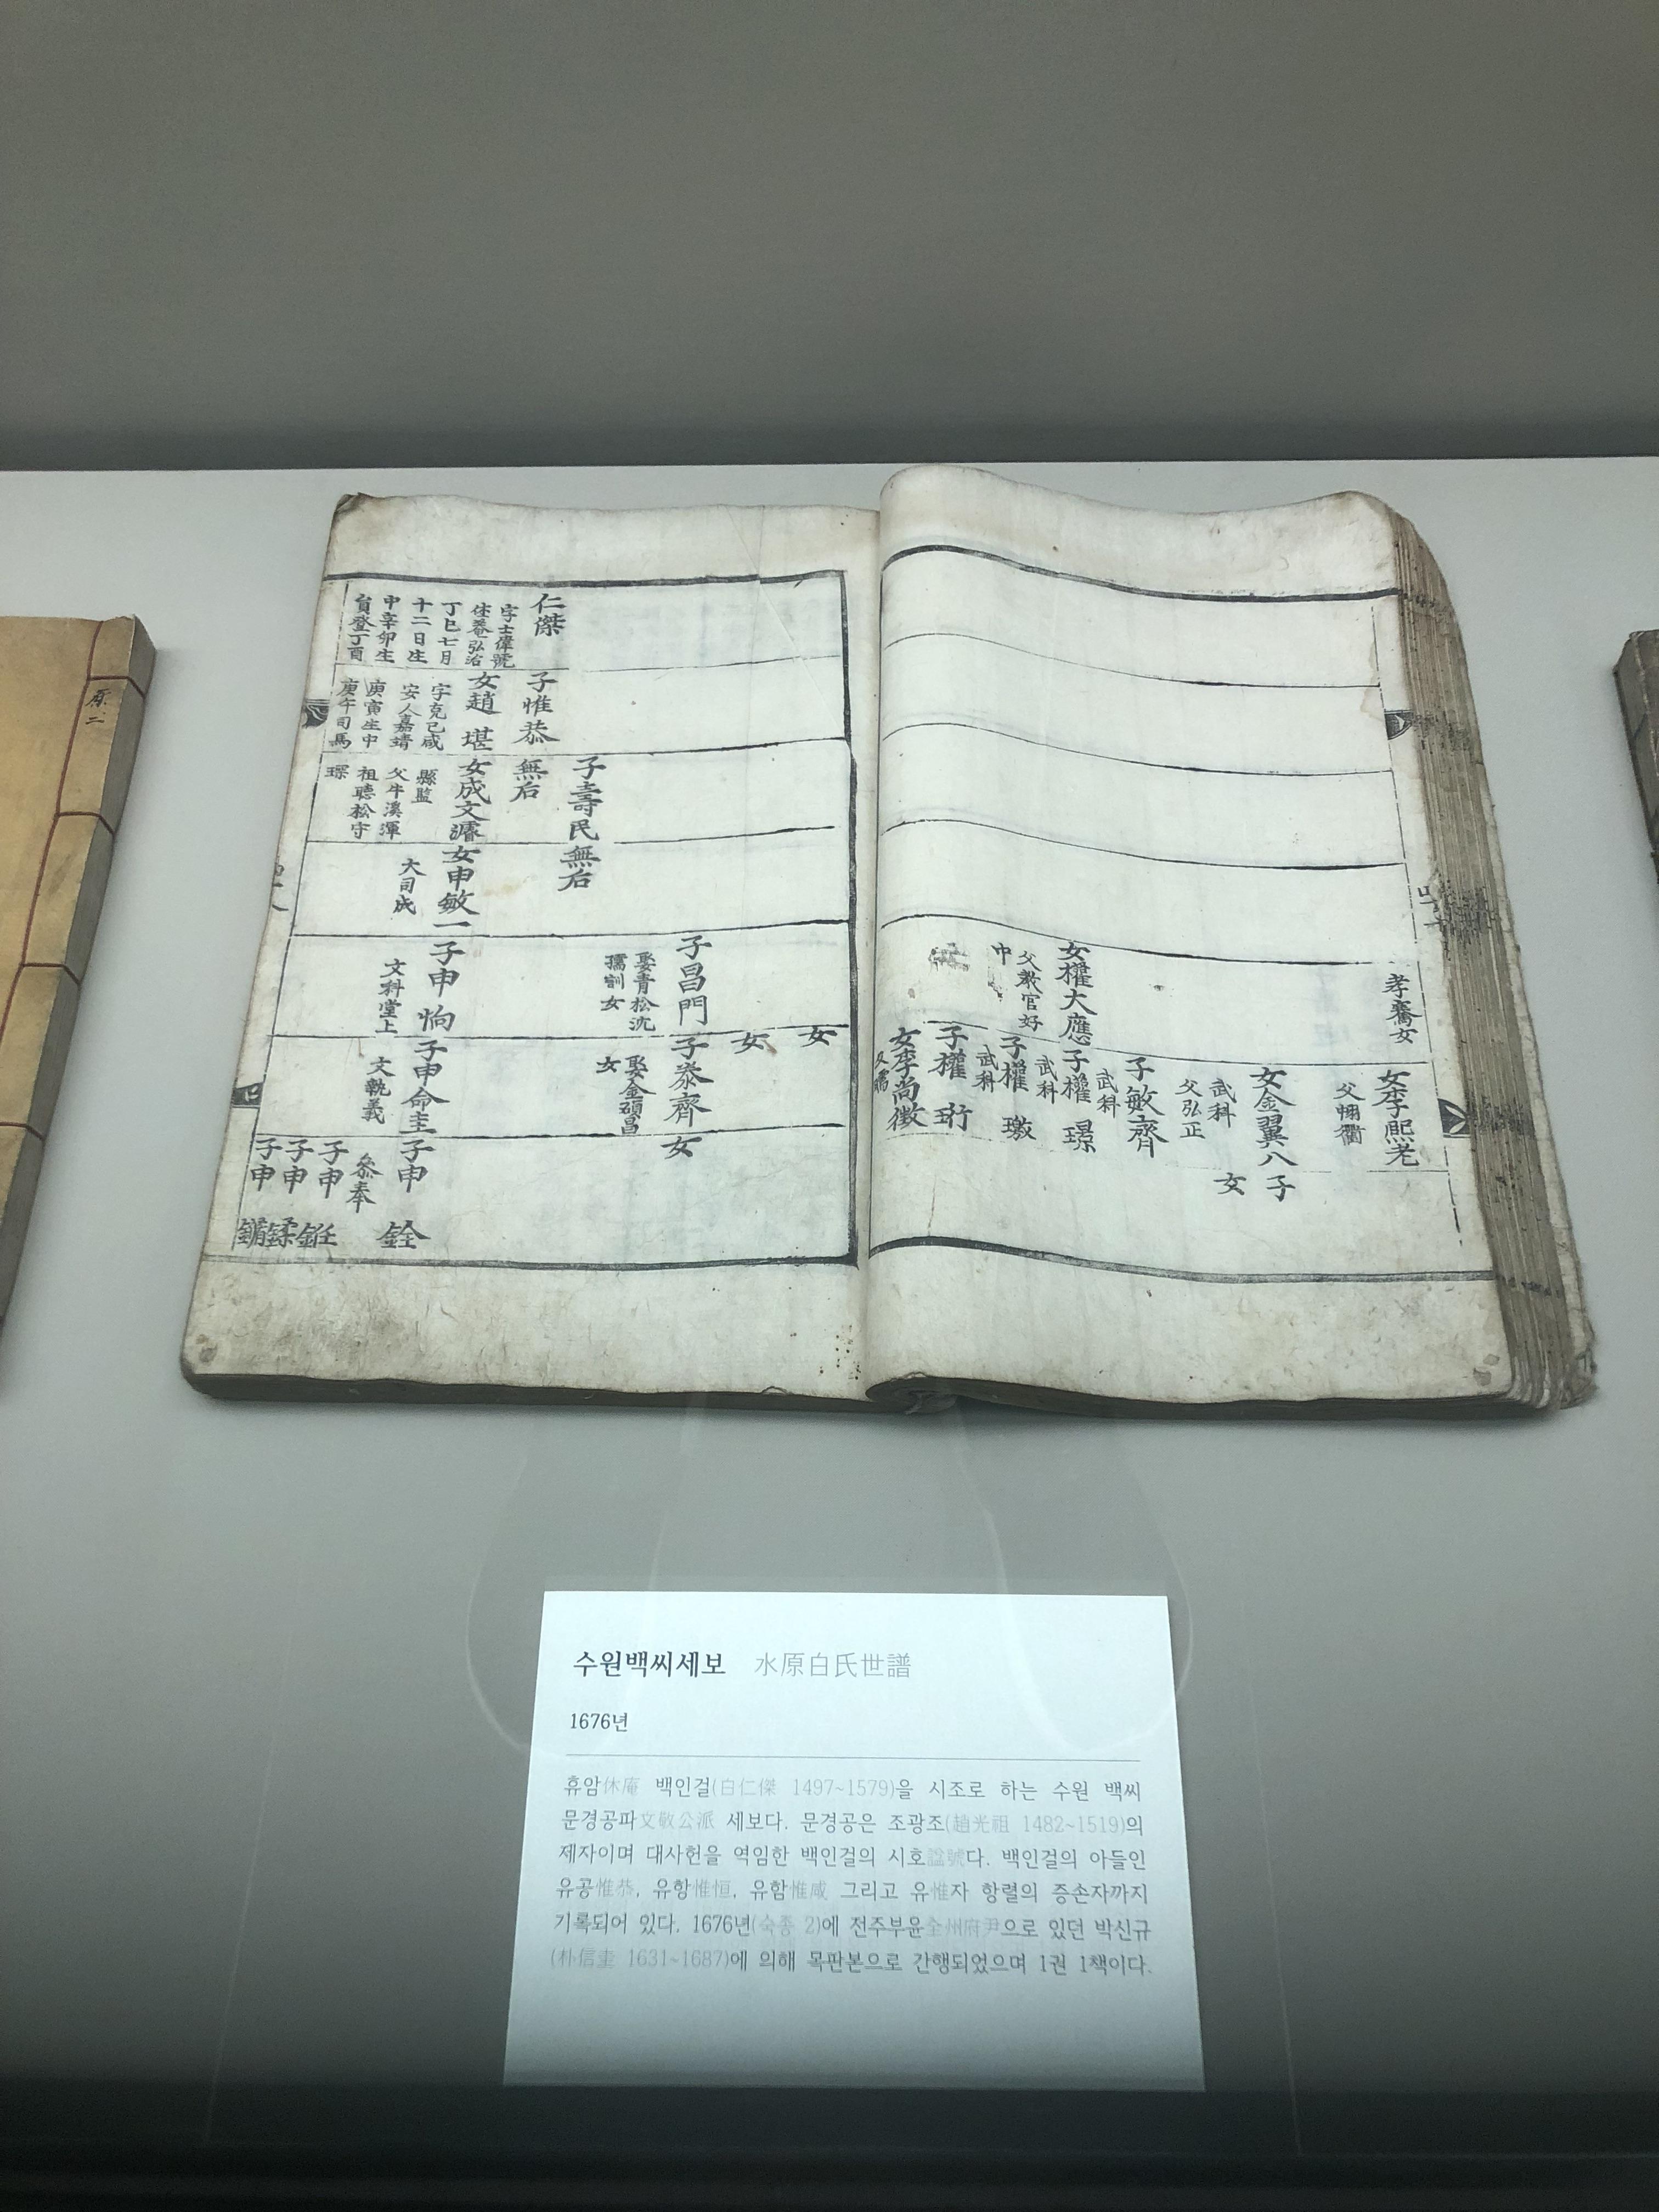 孝騫女
女李熙老
父
女金翼八
武科
父弘正
子
女
子敏齊
女權大應
父教官好
中
子權璟
武科
子權璬
武科
子權珩
武科
女李尚徵
女
女
子昌門
娶青松沈
女
子泰齊
娶金碩昌
女
女
子壽民
無后
仁傑
字士偉號
休菴弘治
丁巳七月
十二日生
中辛卯生
員登丁酉
子惟恭
無后
女趙堪
字克己咸
安人嘉靖
庚寅生中
庚午司馬
女成文濬
縣監
父牛溪渾
祖聽松守
琛
女申敏一
大司成
子申恦
文科堂上
子申命圭
文執義
子申銓
參奉
子申鉦
子申鍒
子申鏽
原二
수원백씨세보 水原白氏世譜
1676년
휴암休庵 백인걸(白仁傑 1497~1579)을 시조로 하는 수원 백씨
문경공파文敬公派 세보다. 문경공은 조광조(趙光祖 1482~1519)의
제자이며 대사헌을 역임한 백인걸의 시호諡號다. 백인걸의 아들인
유공惟恭, 유항惟恒, 유함惟咸 그리고 유惟자 항렬의 증손자까지
기록되어 있다. 1676년(숙종 2)에 전주부윤全州府尹으로 있던 박신규
(朴信圭 1631~1687)에 의해 목판본으로 간행되었으며 1권 1책이다.